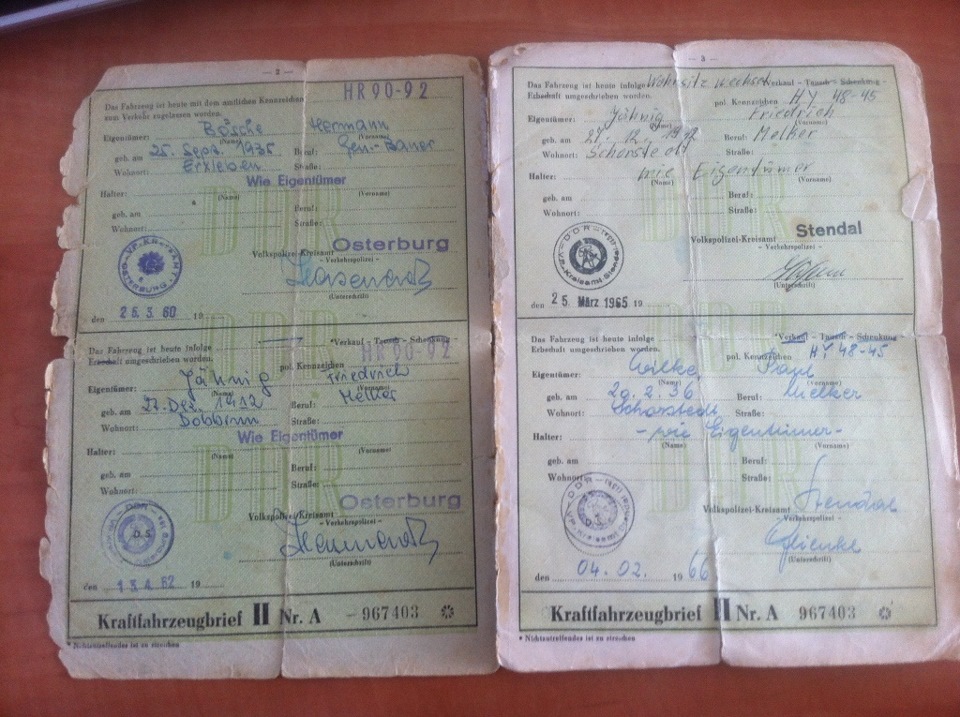 — 2 —
Das Fahrzeug ist heute mit dem amtlichen Kennzeichen HR 90-92
zum Verkehr zugelassen worden.
Eigentümer: Bösche Hermann
(Name) (Vorname)
geb. am 25. Sept. 1935 Beruf: Gen.-Bauer
Wohnort: Erxleben Straße:
Wie Eigentümer
Halter:
(Name) (Vorname)
geb. am Beruf:
Wohnort: Straße:
Osterburg
Volkspolizei-Kreisamt
– Verkehrspolizei –
(Unterschrift)
den 26.3.60 19
Das Fahrzeug ist heute infolge *Verkauf – Tausch – Schenkung
Erbschaft umgeschrieben worden. HR 90-92
pol. Kennzeichen
Eigentümer: Jähnig Friedrich
(Name) (Vorname)
geb. am 27. Dez. 1912 Beruf: Melker
Wohnort: Dobbrun Straße:
Wie Eigentümer
Halter:
(Name) (Vorname)
geb. am Beruf:
Wohnort: Straße:
Osterburg
Volkspolizei-Kreisamt
– Verkehrspolizei –
(Unterschrift)
den 13.4.62 19
Kraftfahrzeugbrief II Nr. A 967403
* Nichtzutreffendes ist zu streichen
— 3 —
Das Fahrzeug ist heute infolge Wohnsitzwechsel Verkauf – Tausch – Schenkung –
Erbschaft umgeschrieben worden. pol. Kennzeichen HY 48-45
Eigentümer: Jähnig Friedrich
(Name) (Vorname)
geb. am 27. 12. 1912 Beruf: Melker
Wohnort: Schorstedt Straße:
Halter: wie Eigentümer
(Name) (Vorname)
geb. am Beruf:
Wohnort: Straße:
Stendal
Volkspolizei-Kreisamt
– Verkehrspolizei –
(Unterschrift)
den 25. März 1965 19
Das Fahrzeug ist heute infolge *Verkauf – Tausch – Schenkung
Erbschaft umgeschrieben worden. pol. Kennzeichen HY 48-45
Eigentümer: Wilke Paul
(Name) (Vorname)
geb. am 29. 2. 36 Beruf: Melker
Wohnort: Schorstedt Straße:
Halter: – wie Eigentümer –
(Name) (Vorname)
geb. am Beruf:
Wohnort: Straße:
Volkspolizei-Kreisamt Stendal
– Verkehrspolizei –
(Unterschrift)
den 04. 02. 1966
Kraftfahrzeugbrief II Nr. A 967403
* Nichtzutreffendes ist zu streichen